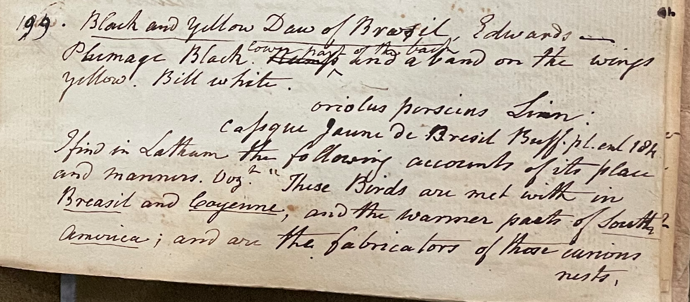 199. Black and Yellow Daw of Brasil, Edwards —
Plumage Black. lower part of the back and a band on the wings
yellow. Bill white.
oriolus persicus Linn:
Cassque Jaune de Bresil Buff. pl. enl 184
I find in Latham the following accounts of its place
and manners. Viz.t "These Birds are met with in
Breasil and Cayenne, and the warmer parts of South
America; and are the fabricators of those curious
nests,